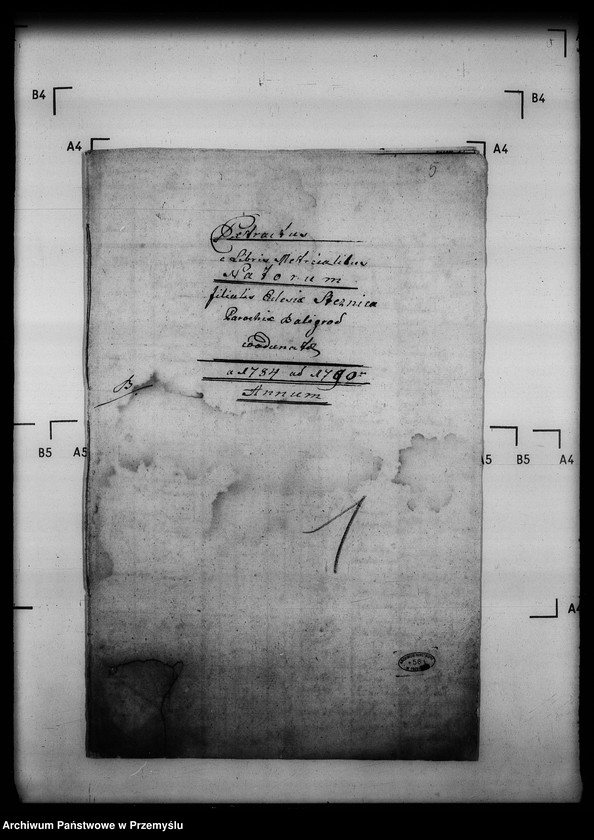 B4
B4
A4
A4
5
Detractus
e Libris Metricalibus
Natorum
filialis Eclesiæ Steżnica
Parochiæ Baligrod
B
a 1784 ad 1790
Annum
B5
A5
B5
A4
1
Archiwum Państwowe w Przemyślu